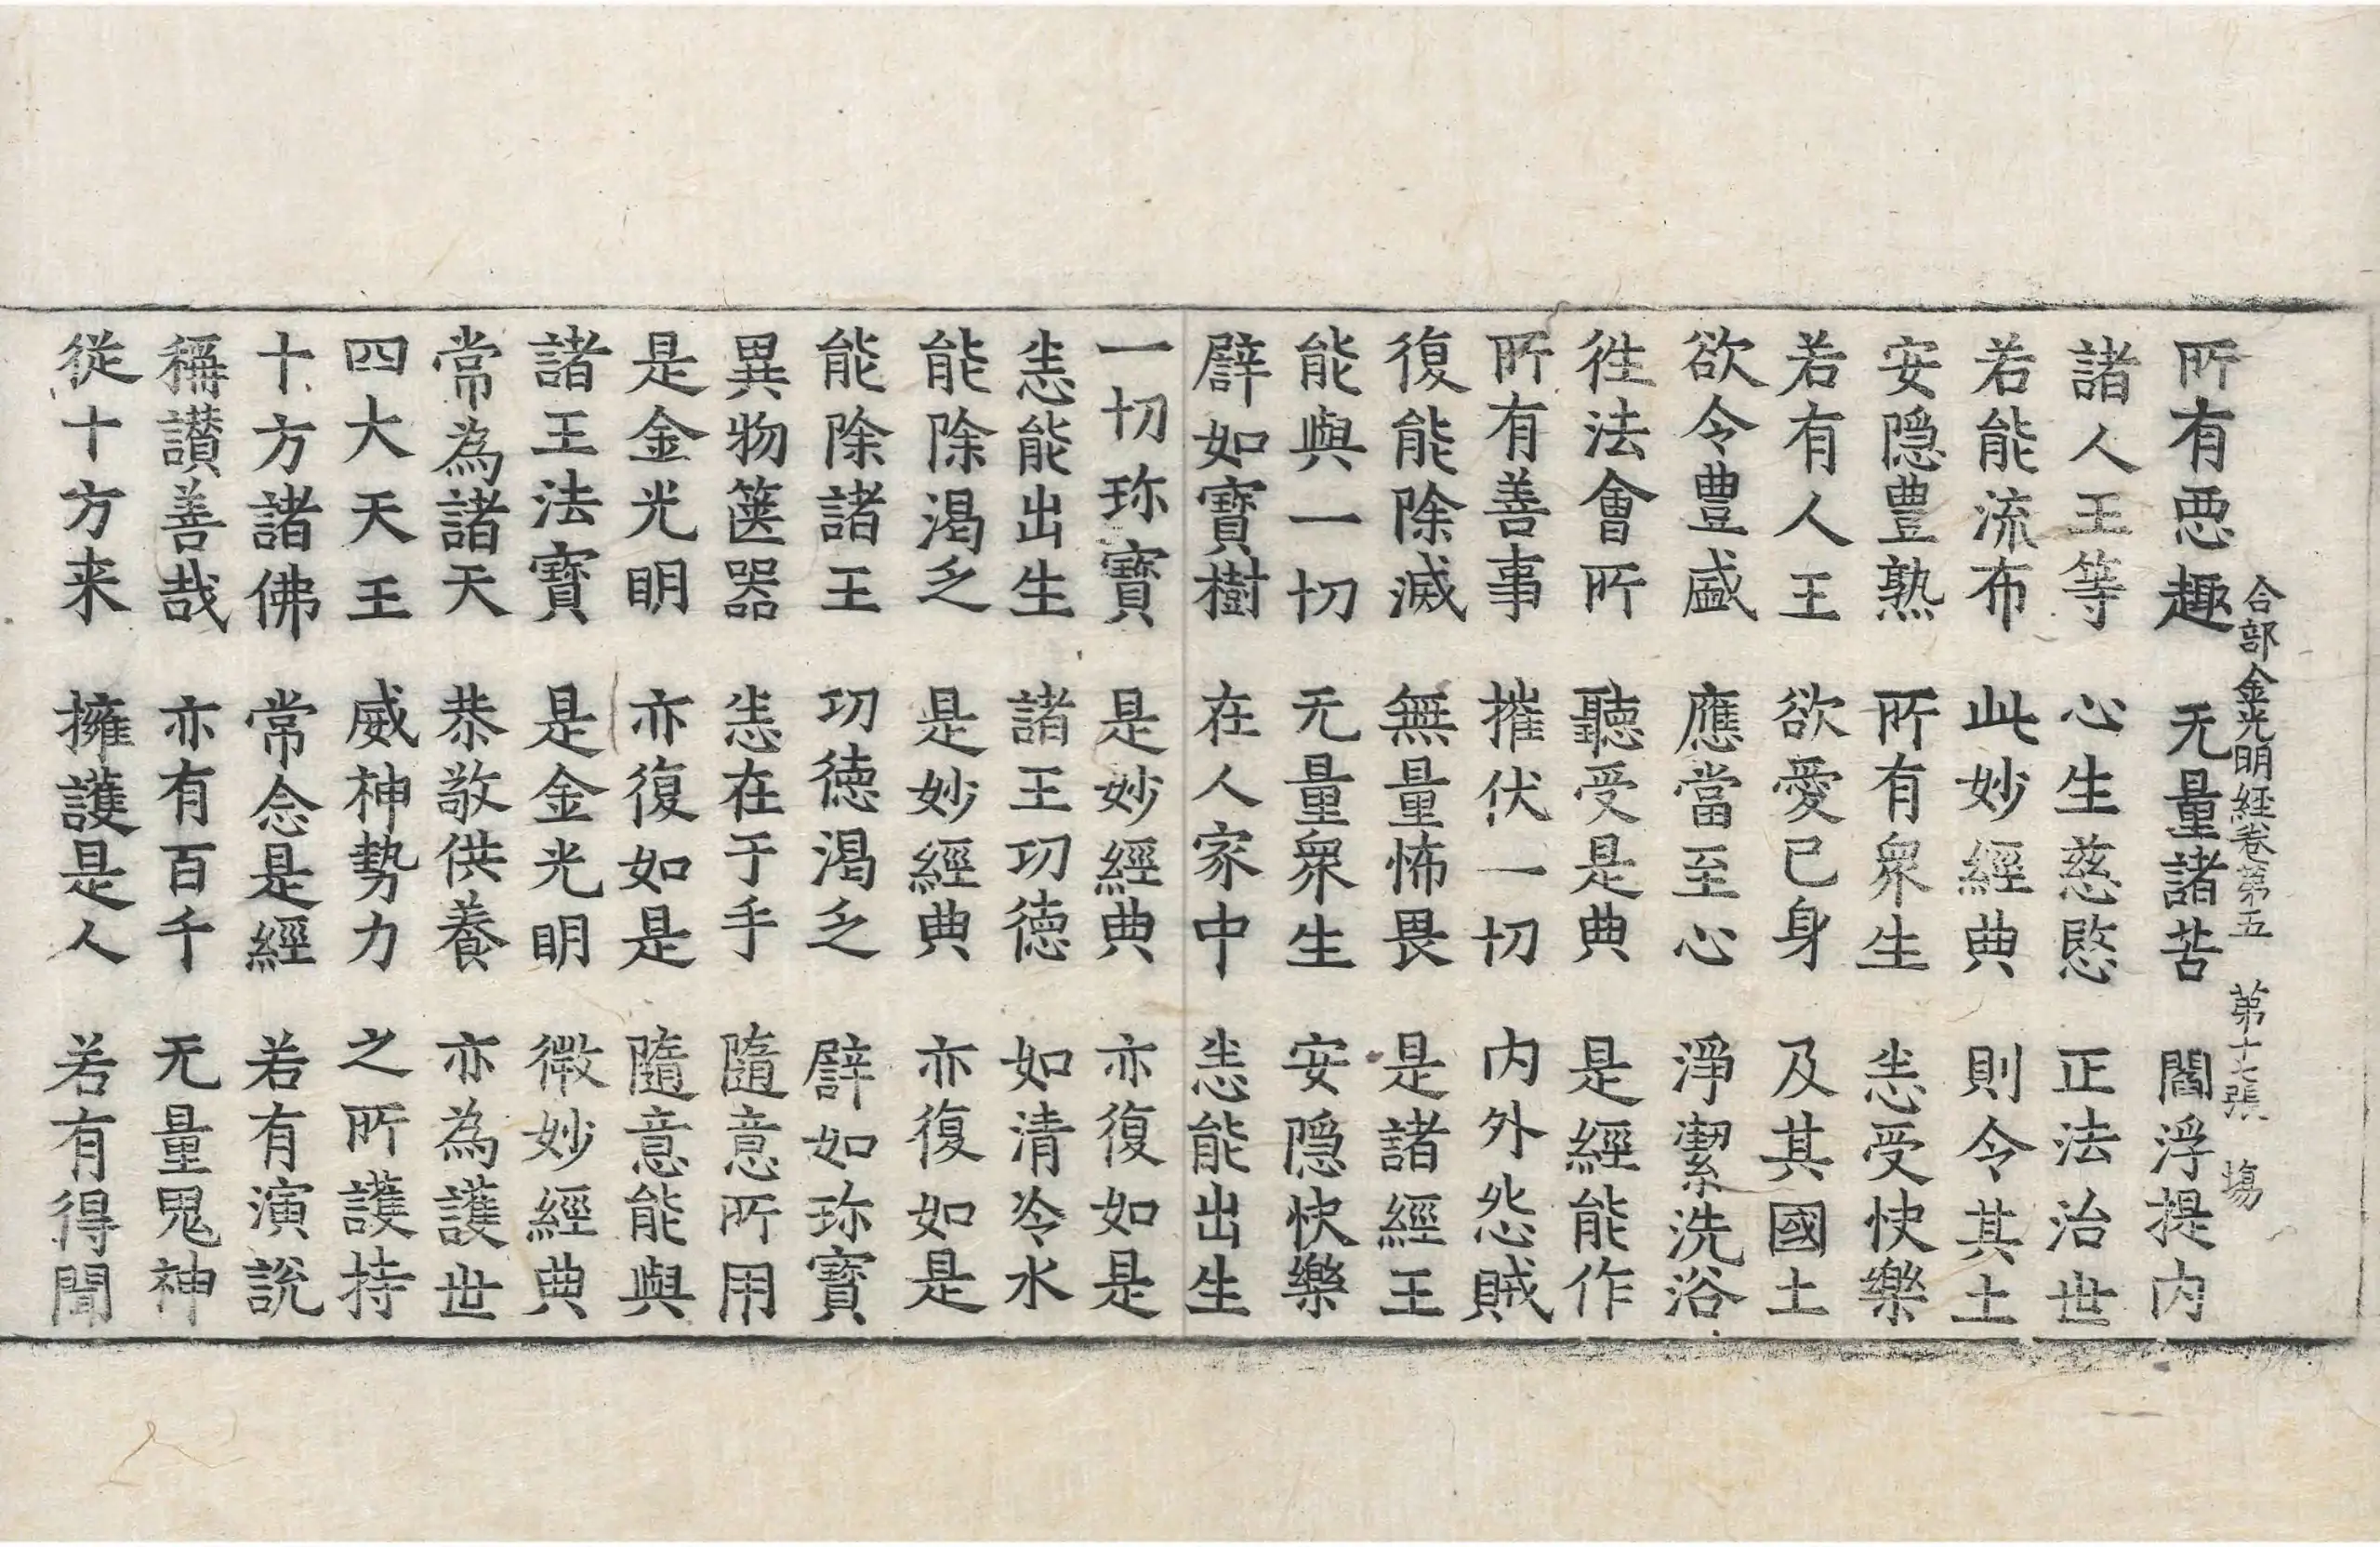 合部金光明經卷第五 第十七張 塲
所有惡趣 无量諸苦 閻浮提内
諸人王等 心生慈愍 正法治世
若能流布 此妙經典 則令其土
安隠豊熟 所有衆生 悉受快樂
若有人王 欲愛己身 及其國土
欲令豊盛 應當至心 淨潔洗浴
徃法會所 聽受是典 是經能作
所有善事 摧伏一切 内外怨賊
復能除滅 無量怖畏 是諸經王
能與一切 无量衆生 安隠快樂
譬如寶樹 在人家中 悉能出生
一切珎寶 是妙經典 亦復如是
悉能出生 諸王功德 如清冷水
能除渴乏 是妙經典 亦復如是
能除諸王 功德渴乏 譬如珎寶
異物箧器 悉在于手 隨意所用
是金光明 亦復如是 隨意能與
諸王法寶 是金光明 微妙經典
常為諸天 恭敬供養 亦為護世
四大天王 威神勢力 之所護持
十方諸佛 常念是經 若有演說
稱讃善哉 亦有百千 无量鬼神
從十方来 擁護是人 若有得聞